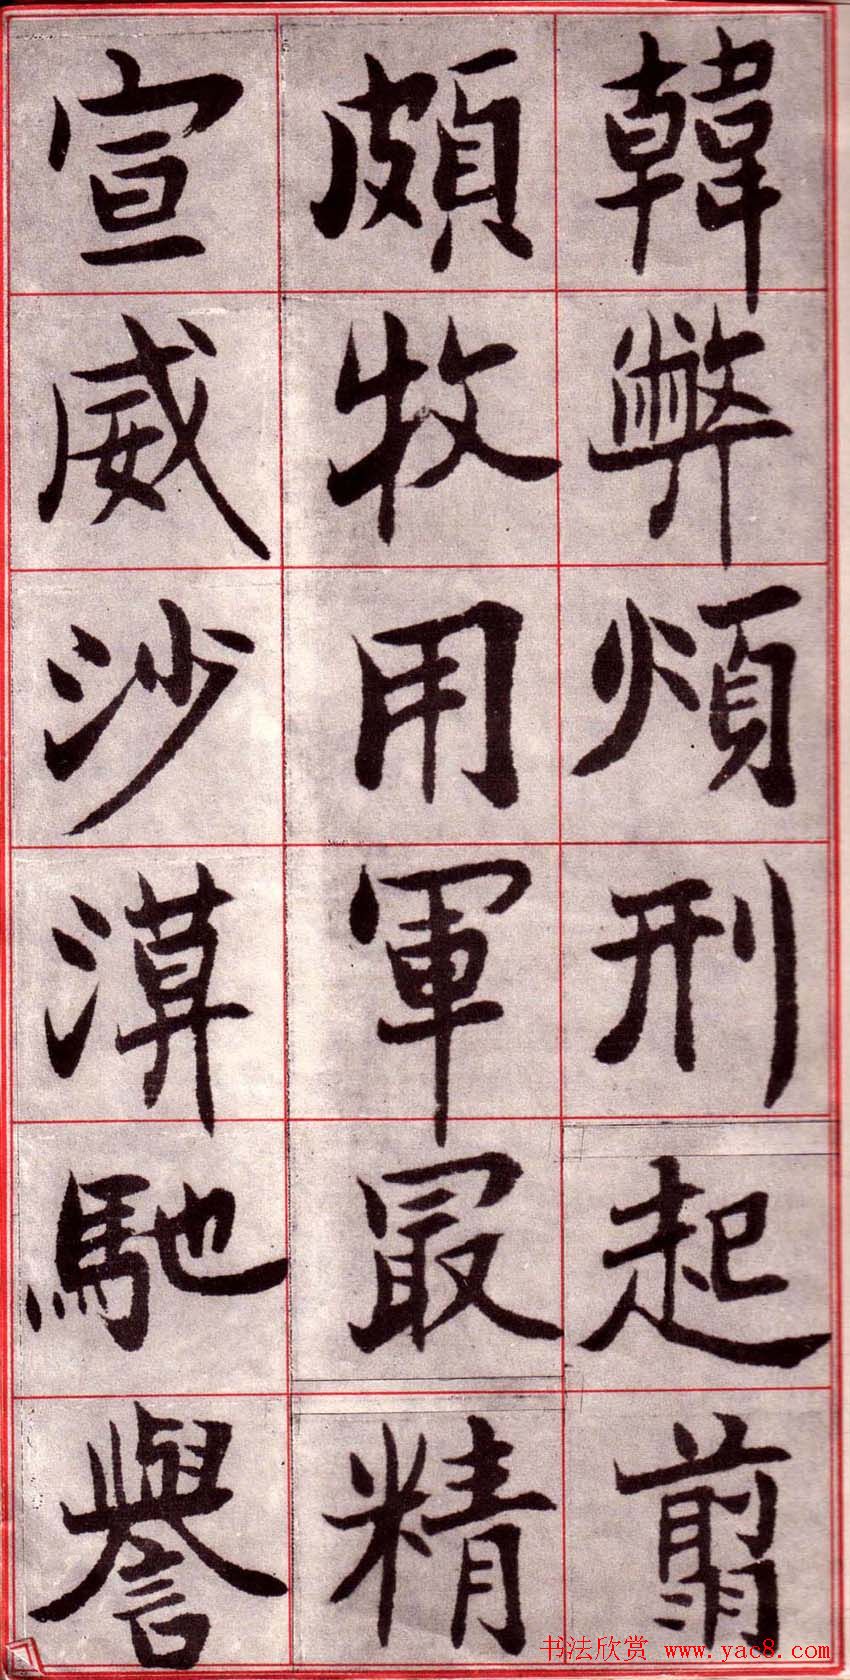 韓弊煩刑起翦
頗牧用軍最精
宣威沙漠馳譽
书法欣赏 www.yac8.com